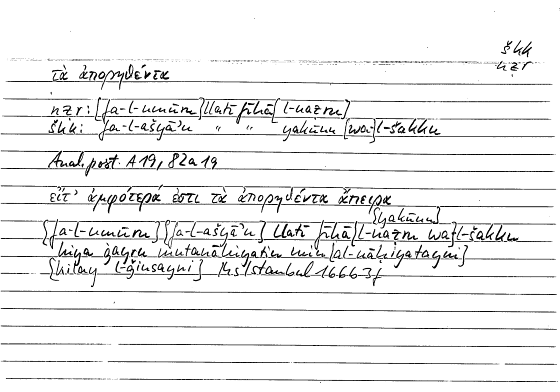 škk
nẓr
τὰ ἀπορηθέντα
nẓr: [fa-l-umūru] llatī fīhā [l-naẓru]
škk: fa-l-ašyāʾu " " yakūnu [wa-]l-šakku
Anal. post. A 19, 82a19
εἴτ' ἀμφότερά ἐστι τὰ ἀπορηθέντα ἄπειρα
{yakūnu}
{fa-l-umūru} {fa-l-ašyāʾu} llatī fīhā {l-naẓru wa} l-šakku
hiya ġayru mutanāhiyatin min {al-nāḥiyatayni}
{kilay l-ǧinsayni} Ms Istanbul 1666 3f